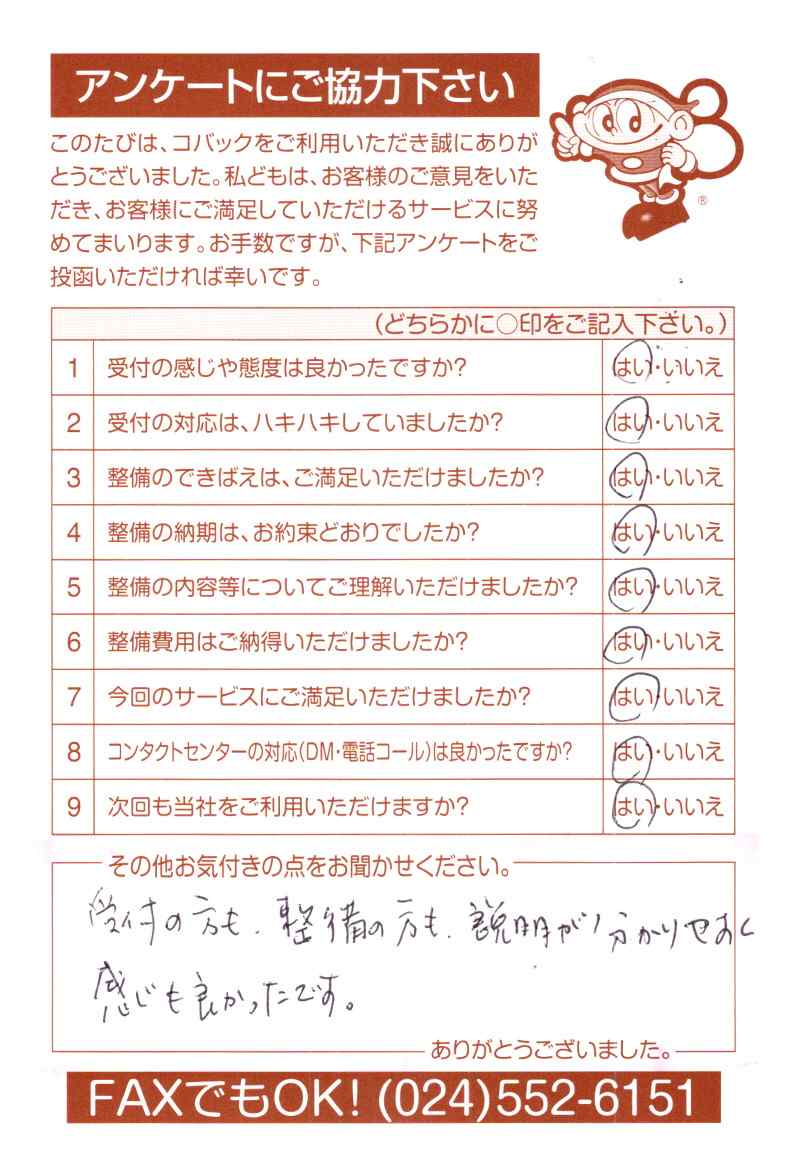 アンケートにご協力下さい
このたびは、コバックをご利用いただき誠にありが
とうございました。私どもは、お客様のご意見をいた
だき、お客様にご満足していただけるサービスに努
めてまいります。お手数ですが、下記アンケートをご
投函いただければ幸いです。
®
(どちらかに○印をご記入下さい。)
1 受付の感じや態度は良かったですか? はい・いいえ
2 受付の対応は、ハキハキしていましたか? はい・いいえ
3 整備のできばえは、ご満足いただけましたか? はい・いいえ
4 整備の納期は、お約束どおりでしたか? はい・いいえ
5 整備の内容等についてご理解いただけましたか? はい・いいえ
6 整備費用はご納得いただけましたか? はい・いいえ
7 今回のサービスにご満足いただけましたか? はい・いいえ
8 コンタクトセンターの対応(DM・電話コール)は良かったですか? はい・いいえ
9 次回も当社をご利用いただけますか? はい・いいえ
その他お気付きの点をお聞かせください。
受付の方も、整備の方も、説明が分かりやすく
感じも良かったです。
ありがとうございました。
FAXでもOK! (024)552-6151